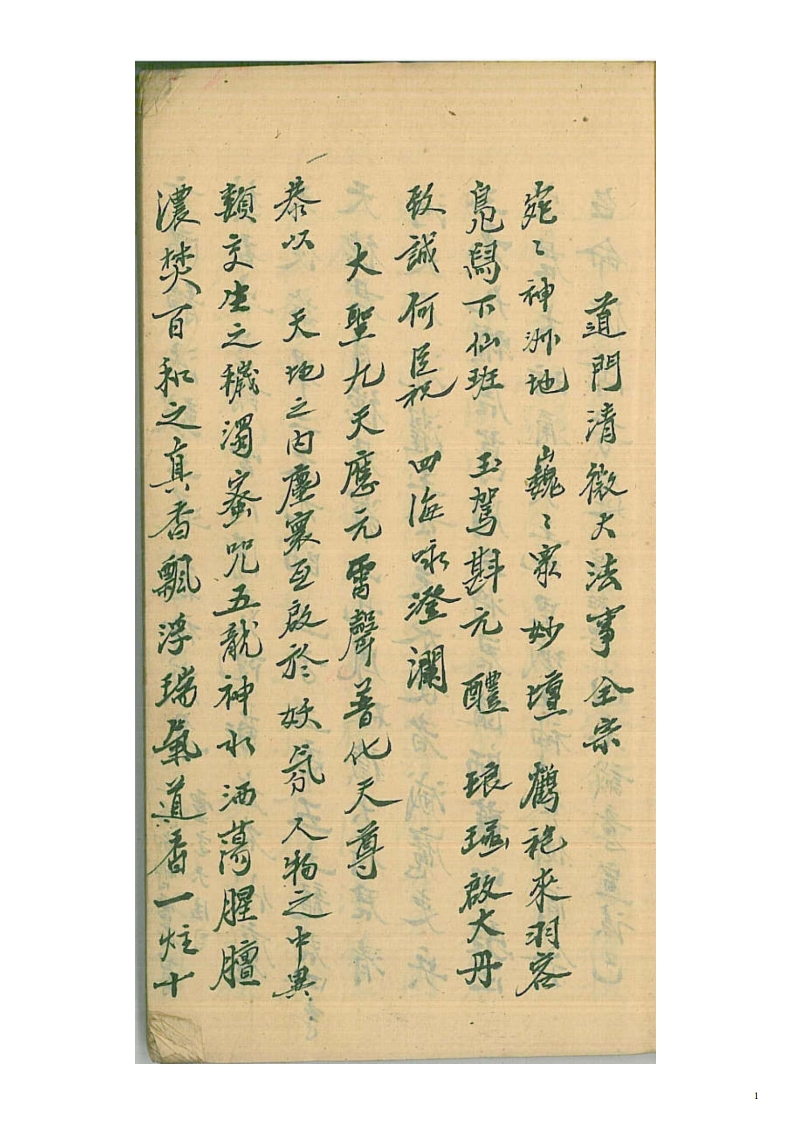 道門清微大法事全宗
宛〻神洲地 巍〻衆妙壇 鶴袍來羽客
鳧舃下仙班 玉駕斟元醴 琅璈啟大丹
致誠何臣祝 四海咏澄瀾
大聖九天應元雷聲普化天尊
恭以 天地之内塵寰亙啟於妖氛人物之中異
類交生之穢濁蜜咒五龍神水洒蕩腥膻
濃焚百和之真香飄浮瑞氣道香一炷十
1